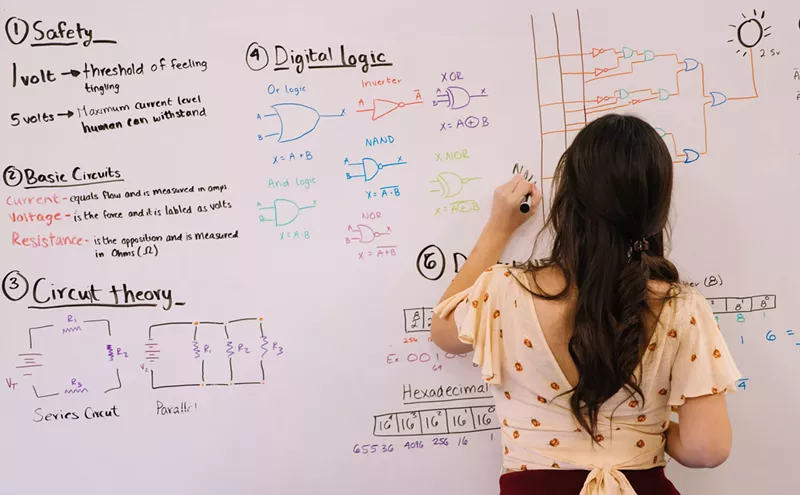 ① Safety
1 volt → threshold of feeling
tingling
5 volts → Maximum current level
human can withstand
② Basic Circuits
Current - equals flow and is measured in amps
Voltage - is the force and it is labled as volts
Resistance - is the opposition and is measured
in Ohms (Ω)
③ Circut theory
R1
R2
R3
VT
Series Circut
R1
R2
R3
Parallel
④ Digital logic
Or logic
A
B
X
X = A + B
Inverter
A
A̅
XOR
A
B
X
X = A ⊕ B
NAND
A
B
X
X = \overline{A · B}
And logic
A
B
X = A · B
X NOR
X = \overline{A ⊕ B}
NOR
X = \overline{A + B}
2.5v
⑥
(8)
8¹
8⁰
256
8
1
Ex. 001
64
1
6 =
Hexadecimal
16⁴ 16³ 16² 16¹ 16⁰
65536 4096 256 16 1